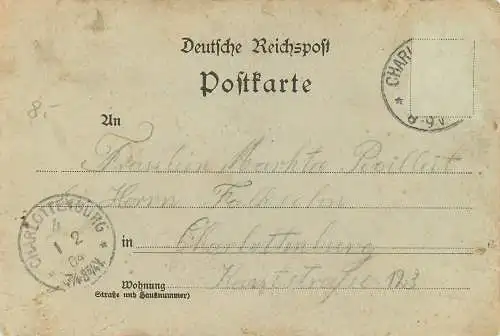 Deutsche Reichspost
Postkarte
CHARL
8.-
An
Fräulein Martha
Herrn
CHARLOTTENBURG
4
1 2
04
in Charlottenburg
Kantstraße 123
Wohnung
(Straße und Hausnummer)